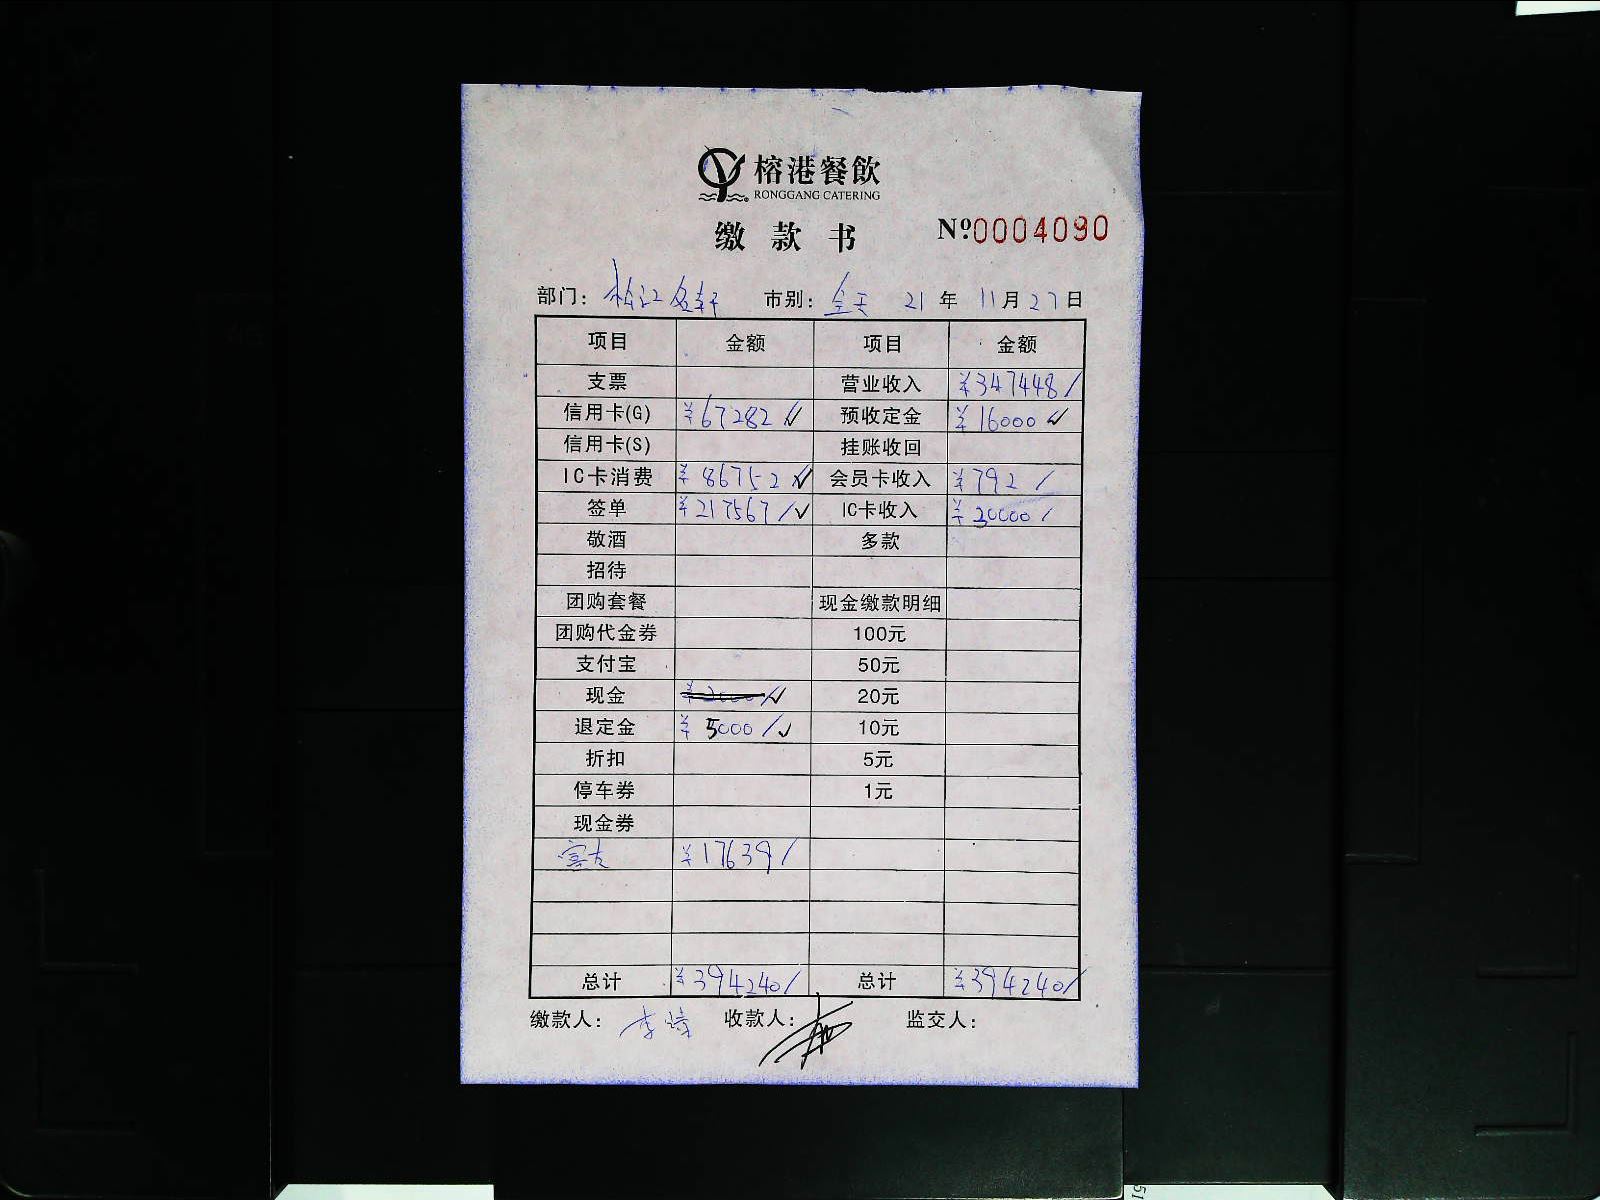 榕港餐飲
RONGGANG CATERING
缴款书 №0004090
部门: 名轩 市别: 全天 21 年 11 月 27 日
项目 金额 项目 金额
支票 营业收入 ¥347448/
信用卡(G) ¥67282 预收定金 ¥16000
信用卡(S) 挂账收回
IC卡消费 ¥86752 会员卡收入 ¥792/
签单 ¥217567/ IC卡收入 ¥30000/
敬酒 多款
招待
团购套餐 现金缴款明细
团购代金券 100元
支付宝 50元
现金 20元
退定金 ¥5000/ 10元
折扣 5元
停车券 1元
现金券
¥17639/
总计 ¥394240/ 总计 ¥394240/
缴款人: 李 收款人: 监交人: